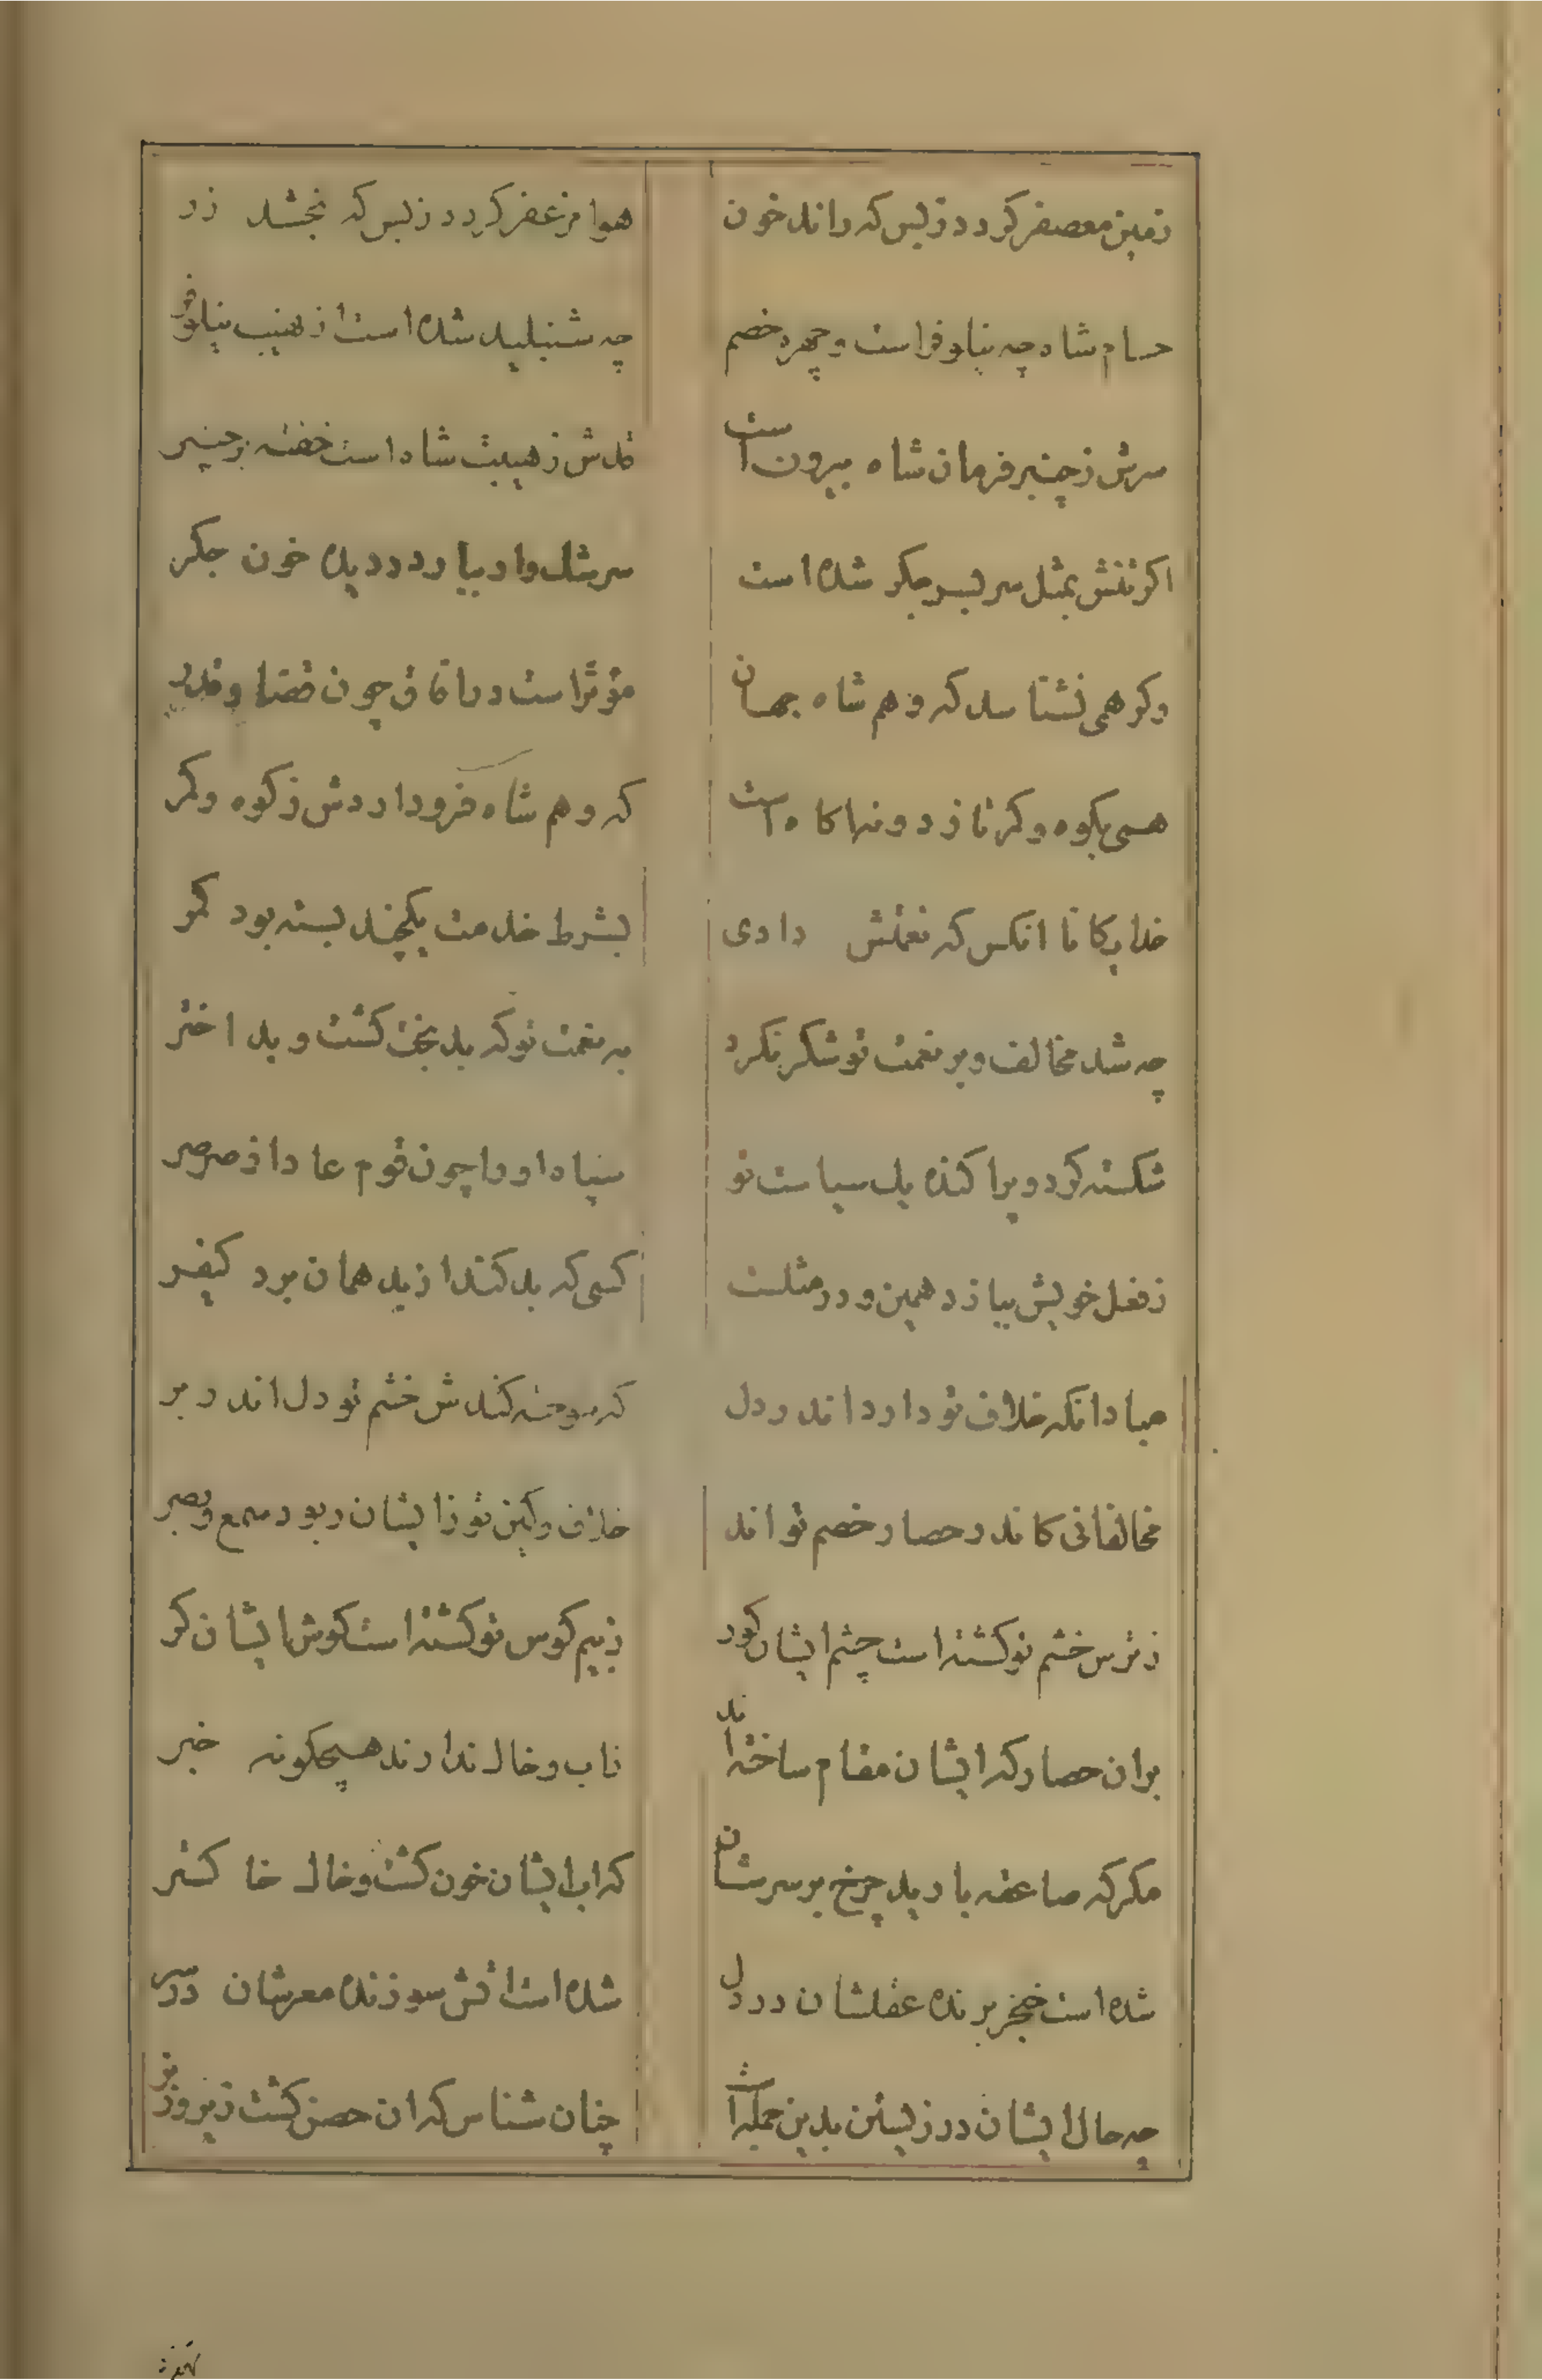 زمین معصفر کردد ز بس که راند خون
هوا مزعفر کردد ز بس که بخشد زر
حسام شاه چه نیلوفر است و چهره خصم
چه شنبلید شده است از نهیب نیلوفر
سرش ز چنبر فرمان شاه بیرون است
قدش ز هیبت شاه است خفته چون چنبر
اکر تنش بمثل سر بسر جکر شده است
سرشک وار ببارد ز دیده خون جکر
وکر همی نشناسد که وهم شاه جهان
مؤثر است در افاق چون قضا و قدر
همی بکوه و کمر نازد و نه اکاه است
که وهم شاه فرود اردش ز کوه و کمر
خدایکانا انکس که نعمتش دادی
بشرط خدمت یکچند بسته بود کمر
چه شد مخالف و بر نعمت تو شکر نکرد
به نعمت تو که بدبخت کشت و بد اختر
شکسته کرد و پراکنده یک سیاست تو
سپاه او را چون قوم عاد از صرصر
ز فعل خویش بیازرد همین و در مثلست
کسی که بد کند از بد همان برد کیفر
مباد انکه خلاف تو دارد اندر دل
که سوخته کندش خشم تو دل اندر بر
مخالفانی کاندر حصار خصم تو اند
خلاف و کین تو زایشان ربود سمع و بصر
ز ترس خشم تو کشته است چشم ایشان کور
ز بیم کوس تو کشته است کوش ایشان کر
بران حصار که ایشان مقام ساخته اند
ز اب و خاک ندارند هیچکونه خبر
مکر که صاعقه بارید چرخ بر سرشان
که اب ایشان خون کشت و خاک خاکستر
شده است خنجر برنده عقلشان در دل
شده است اتش سوزنده مغزشان در سر
چه حال ایشان در زیستن بدین جمله است
چنان شناس که ان حصن کشت زیر و زبر